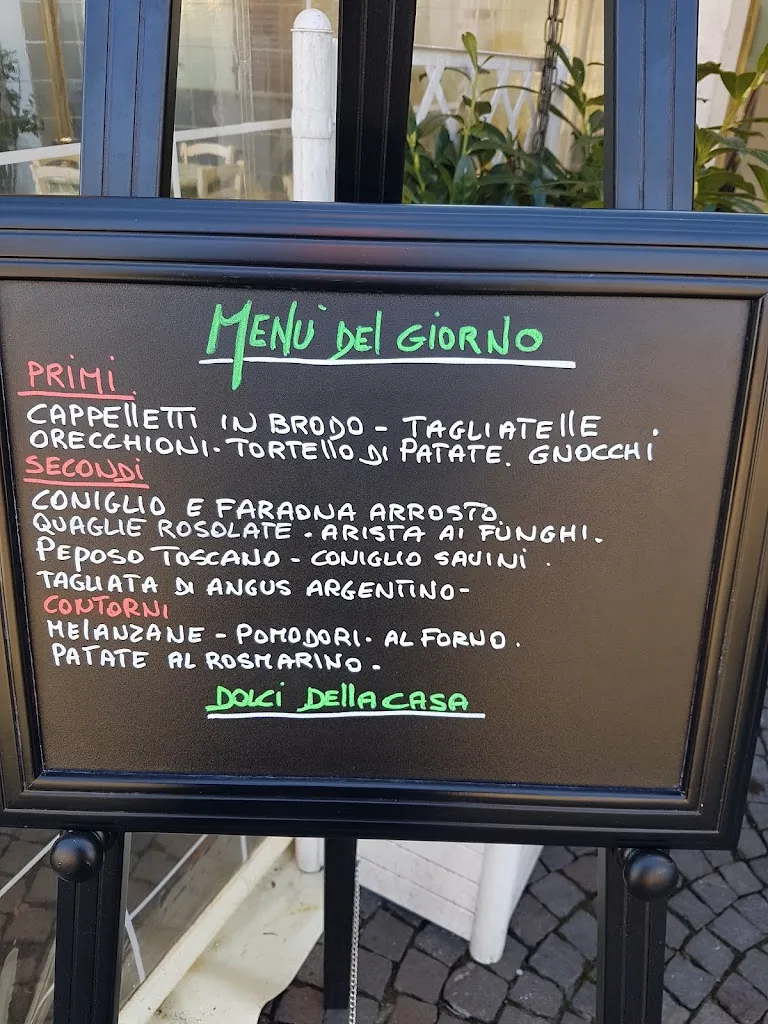 MENU' DEL GIORNO
PRIMI.
CAPPELLETTI IN BRODO - TAGLIATELLE.
ORECCHIONI. TORTELLO DI PATATE. GNOCCHI
SECONDI
CONIGLIO E FARAONA ARROSTO.
QUAGLIE ROSOLATE - ARISTA AI FUNGHI.
PEPOSO TOSCANO - CONIGLIO SAVINI.
TAGLIATA DI ANGUS ARGENTINO-
CONTORNI
MELANZANE - POMODORI. AL FORNO.
PATATE AL ROSMARINO.
DOLCI DELLA CASA